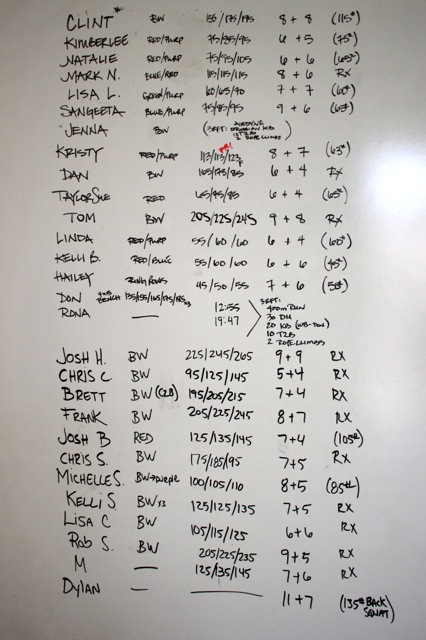 CLINT* BW 155/175/195 8 + 8 (115#)
KIMBERLEE RED/PURP 75/85/95 6 + 5 (75#)
NATALIE RED/PURP 75/95/105 6 + 6 (65#)
MARK N. BLUE/RED 115/115/115 8 + 6 RX
LISA L. GREEN/PURP 60/65/70 7 + 7 (60#)
SANGEETA BLUE/PURP 75/85/95 9 + 6 (65#)
JENNA BW (3 RFT: AIRDYNE RUSSIAN KB 15 T2B 2 ROPE CLIMBS)
KRISTY RED/PURP 113/113/123 PR! 8 + 7 (63#)
DAN BW 165/175/185 6 + 4 RX
TAYLOR SUE RED 65/75/85 6 + 4 (65#)
TOM BW 205/225/245 9 + 8 RX
LINDA RED/PURP 55/60/60 6 + 4 (60#)
KELLI B. RED/BLUE 55/60/60 6 + 6 (45#)
HAILEY RING ROWS 45/50/55 7 + 6 (50#)
DON BENCH 135/155/165/175/185 12:55
RONA — 19:47
3 RFT:
400m RUN
30 DU
20 KB
10 T2B
2 ROPE CLIMBS
JOSH H. BW 225/245/265 9 + 9 RX
CHRIS C. BW 95/125/145 5+4 RX
BRETT BW (C2B) 195/205/215 7+4 RX
FRANK BW 205/225/245 8+7 RX
JOSH B RED 125/135/145 7+4 (105#)
CHRIS S. BW 175/185/195 7+5 RX
MICHELLE S. BW→purple 100/105/110 8+5 (85#)
KELLI S BW x3 125/125/135 7+5 RX
LISA C BW 105/115/125 6+6 RX
ROB S. BW 205/225/235 9+5 RX
M — 125/135/145 7+6 RX
DYLAN — — 11+7 (135# BACK SQUAT)